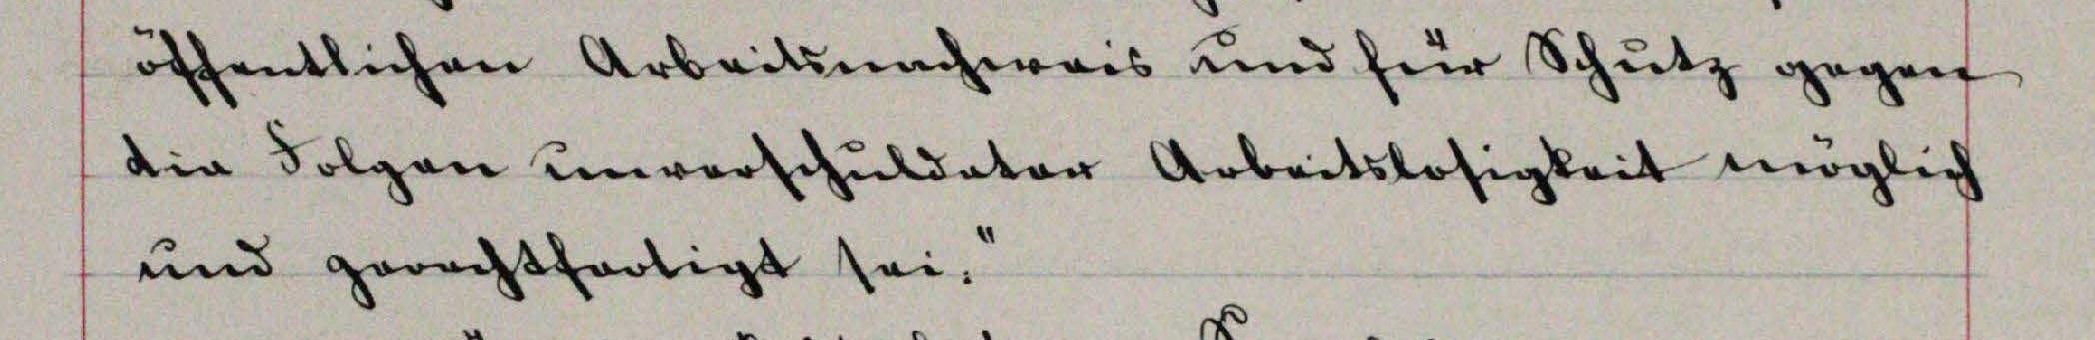 öffentlichen Arbeitsnachweis und für Schutz gegen
die Folgen unverschuldeter Arbeitslosigkeit möglich
und gerechtfertigt sei."